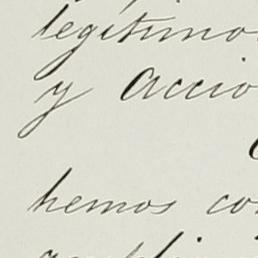 legitimo
y Accio
hemos co